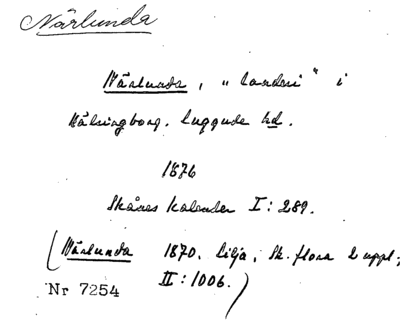 Närlunda
Närlunda, "landeri" i
Hälsingborg. Luggude hd.
1876
Skånes kalender I: 289.
(Närlunda 1870. Lilja, Sk. flora 2 uppl;
II: 1006.)
Nr 7254